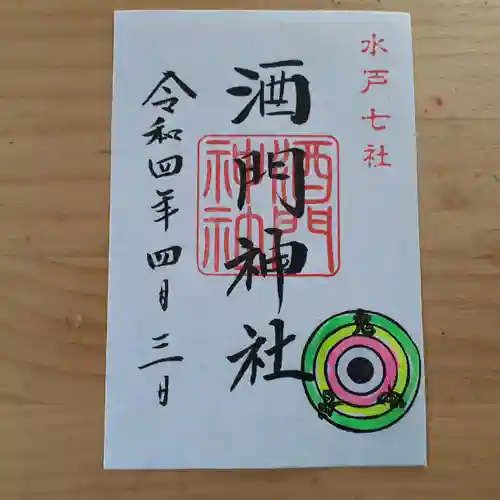 水戸七社
酒門神社
酒門
神社
令和四年 四月 三日